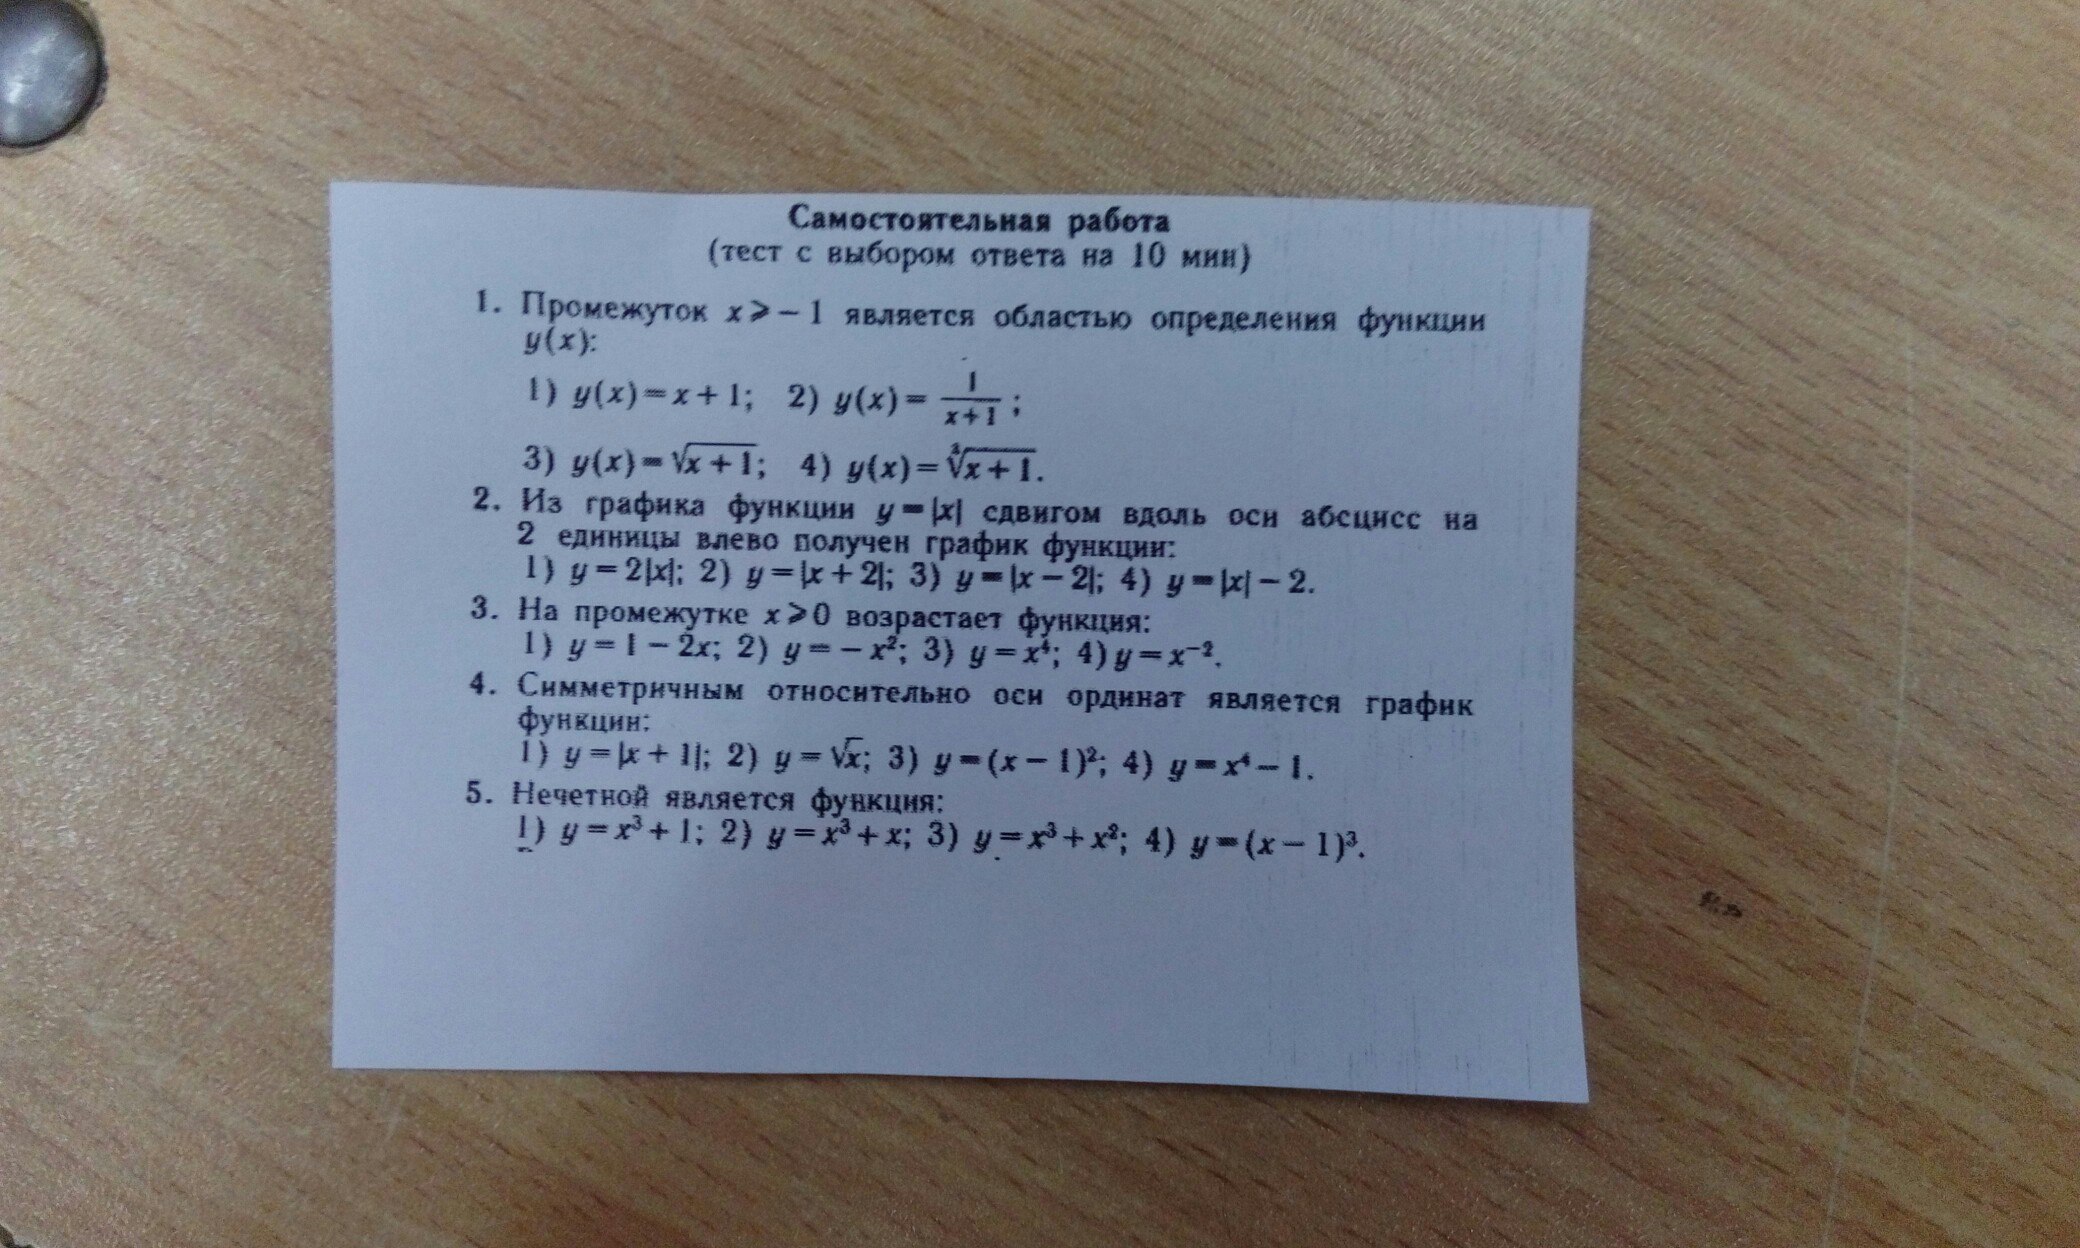 Самостоятельная работа
(тест с выбором ответа на 10 мин)
1. Промежуток x ⩾ − 1 является областью определения функции
y(x):
1) y(x) = x + 1; 2) y(x) = 1/(x+1) ;
3) y(x) = √(x + 1); 4) y(x) = ∛(x + 1).
2. Из графика функции y = |x| сдвигом вдоль оси абсцисс на
2 единицы влево получен график функции:
1) y = 2|x|; 2) y = |x + 2|; 3) y = |x − 2|; 4) y = |x| − 2.
3. На промежутке x ⩾ 0 возрастает функция:
1) y = 1 − 2x; 2) y = − x²; 3) y = x⁴; 4) y = x⁻².
4. Симметричным относительно оси ординат является график
функции:
1) y = |x + 1|; 2) y = √x; 3) y = (x − 1)²; 4) y = x⁴ − 1.
5. Нечетной является функция:
1) y = x³ + 1; 2) y = x³ + x; 3) y = x³ + x²; 4) y = (x − 1)³.